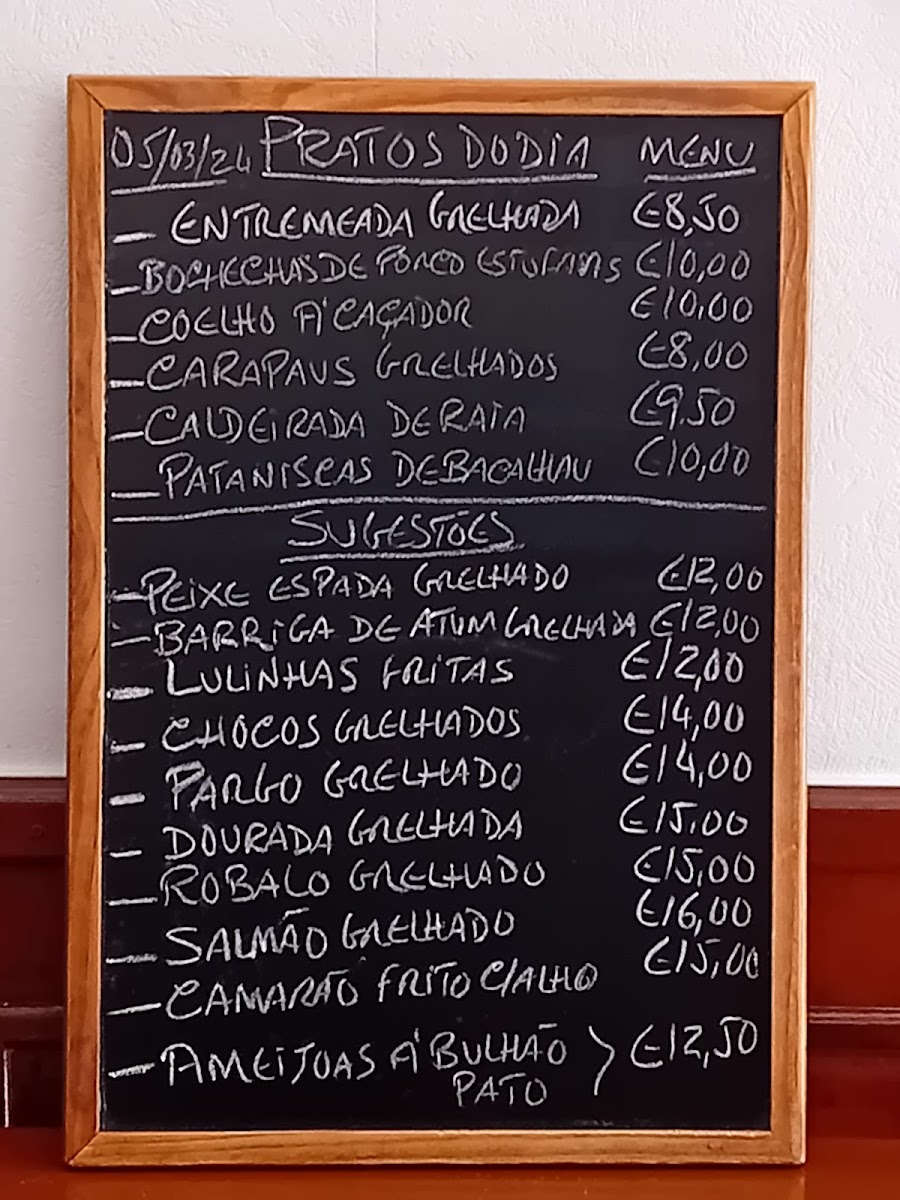 05/03/24 PRATOS DO DIA MENU
- ENTREMEADA GRELHADA €8,50
- BOCHECHAS DE PORCO ESTUFADAS €10,00
- COELHO Á CAÇADOR €10,00
- CARAPAUS GRELHADOS €8,00
- CALDEIRADA DE RAIA €9.50
- PATANISCAS DE BACALHAU €10,00
SUGESTÕES
- PEIXE ESPADA GRELHADO €12,00
- BARRIGA DE ATUM GRELHADA €12,00
- LULINHAS FRITAS €12,00
- CHOCOS GRELHADOS €14,00
- PARGO GRELHADO €14,00
- DOURADA GRELHADA €15.00
- ROBALO GRELHADO €15,00
- SALMÃO GRELHADO €16,00
- CAMARÃO FRITO C/ALHO €15,00
- AMEIJOAS Á BULHÃO > €12,50
PATO